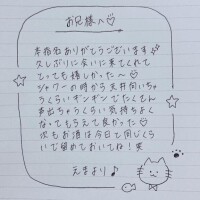 お兄様へ♡
本指名ありがとうございます
久しぶりに会いに来てくれて
とっても嬉しかった〜♡
シャワーの時から天井向いちゃ
うくらいギンギンでたくさん
声出ちゃうくらい気持ちよく
なってもらえて良かった♡
次もお酒は今日と同じくら
いで留めておいてね！笑
えまより♪